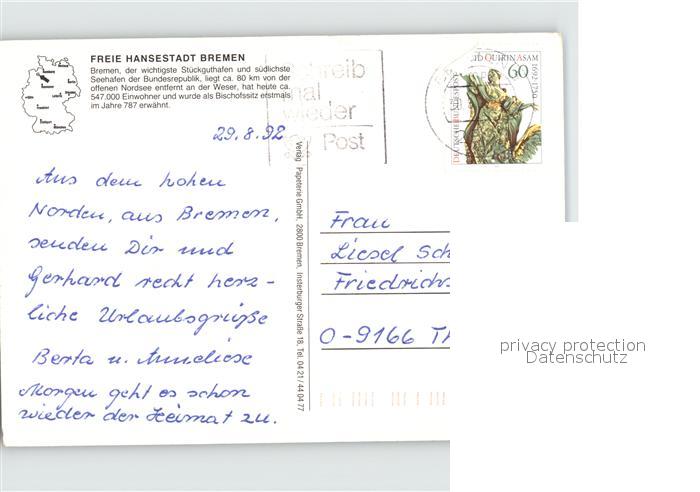 FREIE HANSESTADT BREMEN
Bremen, der wichtigste Stückguthafen und südlichste
Seehafen der Bundesrepublik, liegt ca. 80 km von der
offenen Nordsee entfernt an der Weser, hat heute ca.
547.000 Einwohner und wurde als Bischofssitz erstmals
im Jahre 787 erwähnt.
schreib
mal
wieder
Post
60
QUIRIN ASAM
1692-1750
29.8.92
Aus dem hohen
Norden, aus Bremen,
senden Dir und
Gerhard recht herz-
liche Urlaubsgrüße
Berta u. Anneliese
Morgen geht es schon
wieder der Heimat zu.
Verlag Papeterie GmbH, 2800 Bremen, Insterburger Straße 18, Tel. 04 21 / 44 04 77
Frau
Liesel Sch
Friedrichs
O-9166 Th
privacy protection
Datenschutz